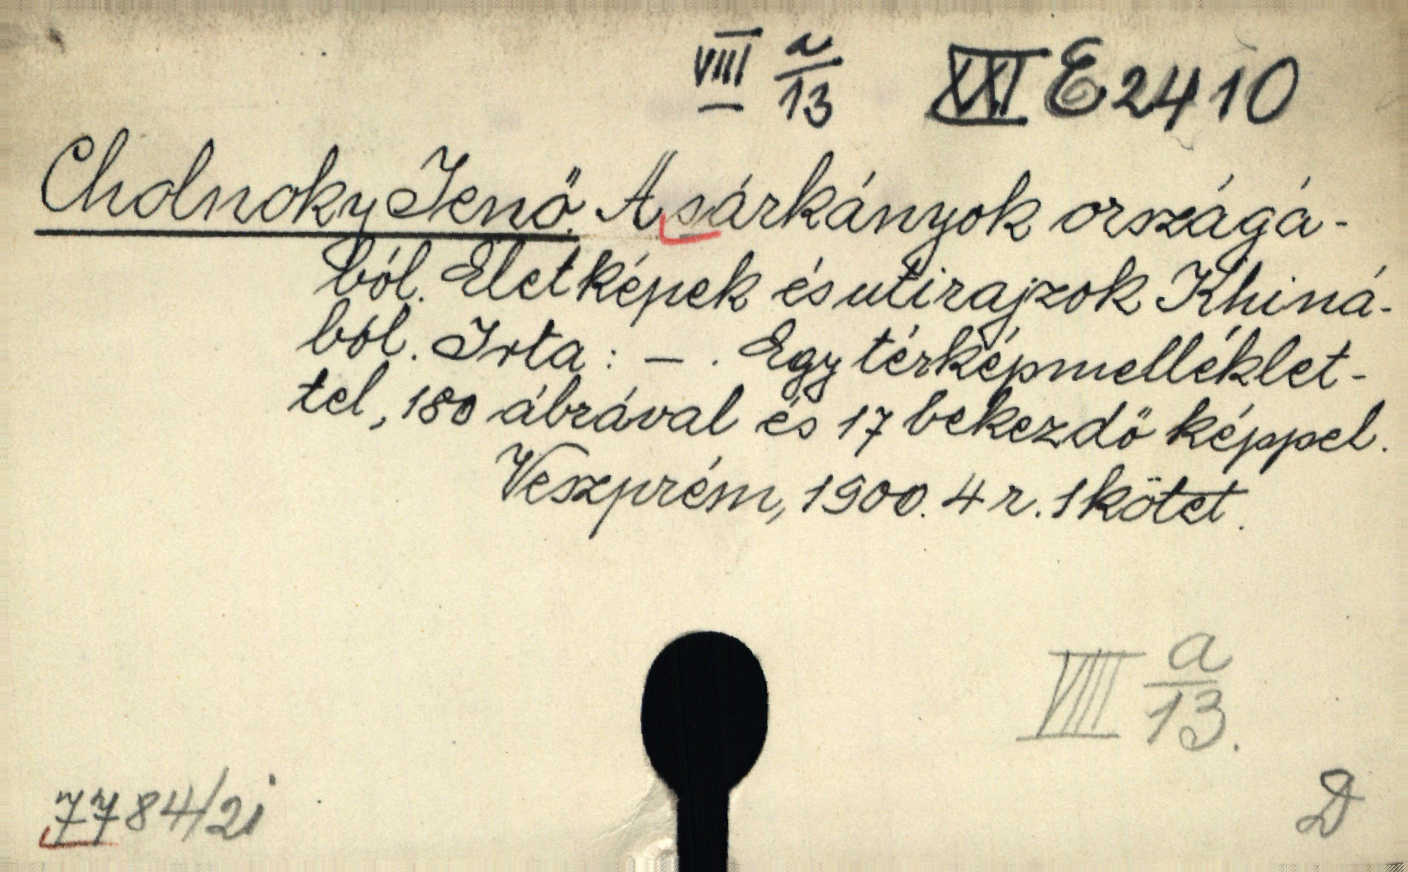 VIII a/13 XXI E 2410
Cholnoky Jenő. A sárkányok országá-
ból. Életképek és utirajzok Khiná-
ból. Irta: — . Egy térképmelléklet-
tel, 180 ábrával és 17 bekezdő képpel.
Veszprém, 1900. 4 r. 1 kötet.
VIII a/13.
7784/2i
D